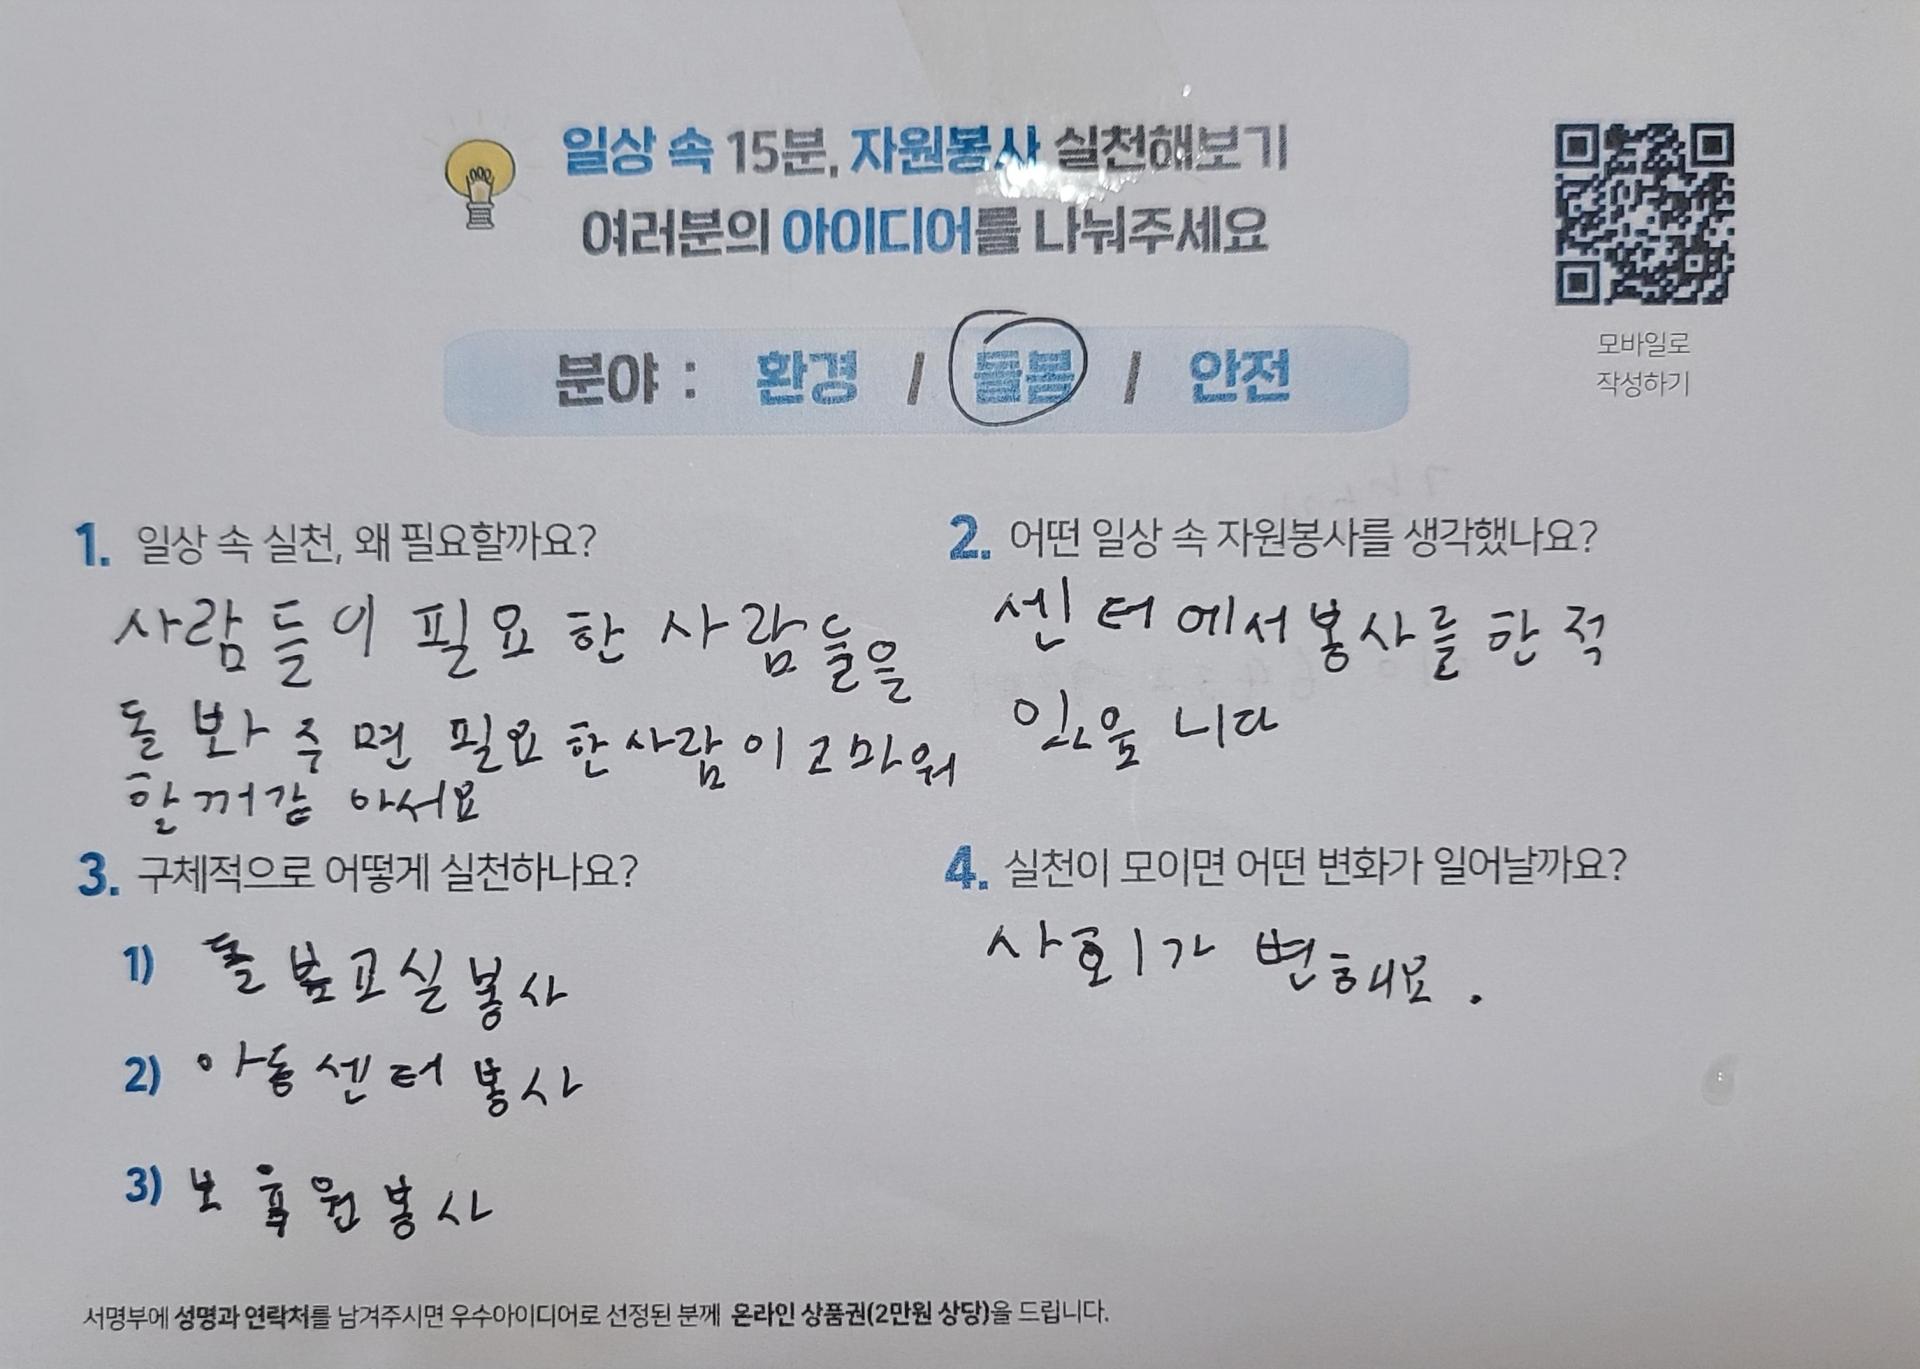 일상 속 15분, 자원봉사 실천해보기
여러분의 아이디어를 나눠주세요
모바일로
작성하기
분야 : 환경 / 돌봄 / 안전
1. 일상 속 실천, 왜 필요할까요?
사람들이 필요한 사람들을
돌봐주면 필요한사람이 고마워
할꺼같아서요
2. 어떤 일상 속 자원봉사를 생각했나요?
센터에서봉사를 한적
있읖니다
3. 구체적으로 어떻게 실천하나요?
1) 돌봄교실봉사
2) 아동센터봉사
3) 보육원봉사
4. 실천이 모이면 어떤 변화가 일어날까요?
사회가 변해요.
서명부에 성명과 연락처를 남겨주시면 우수아이디어로 선정된 분께 온라인 상품권(2만원 상당)을 드립니다.